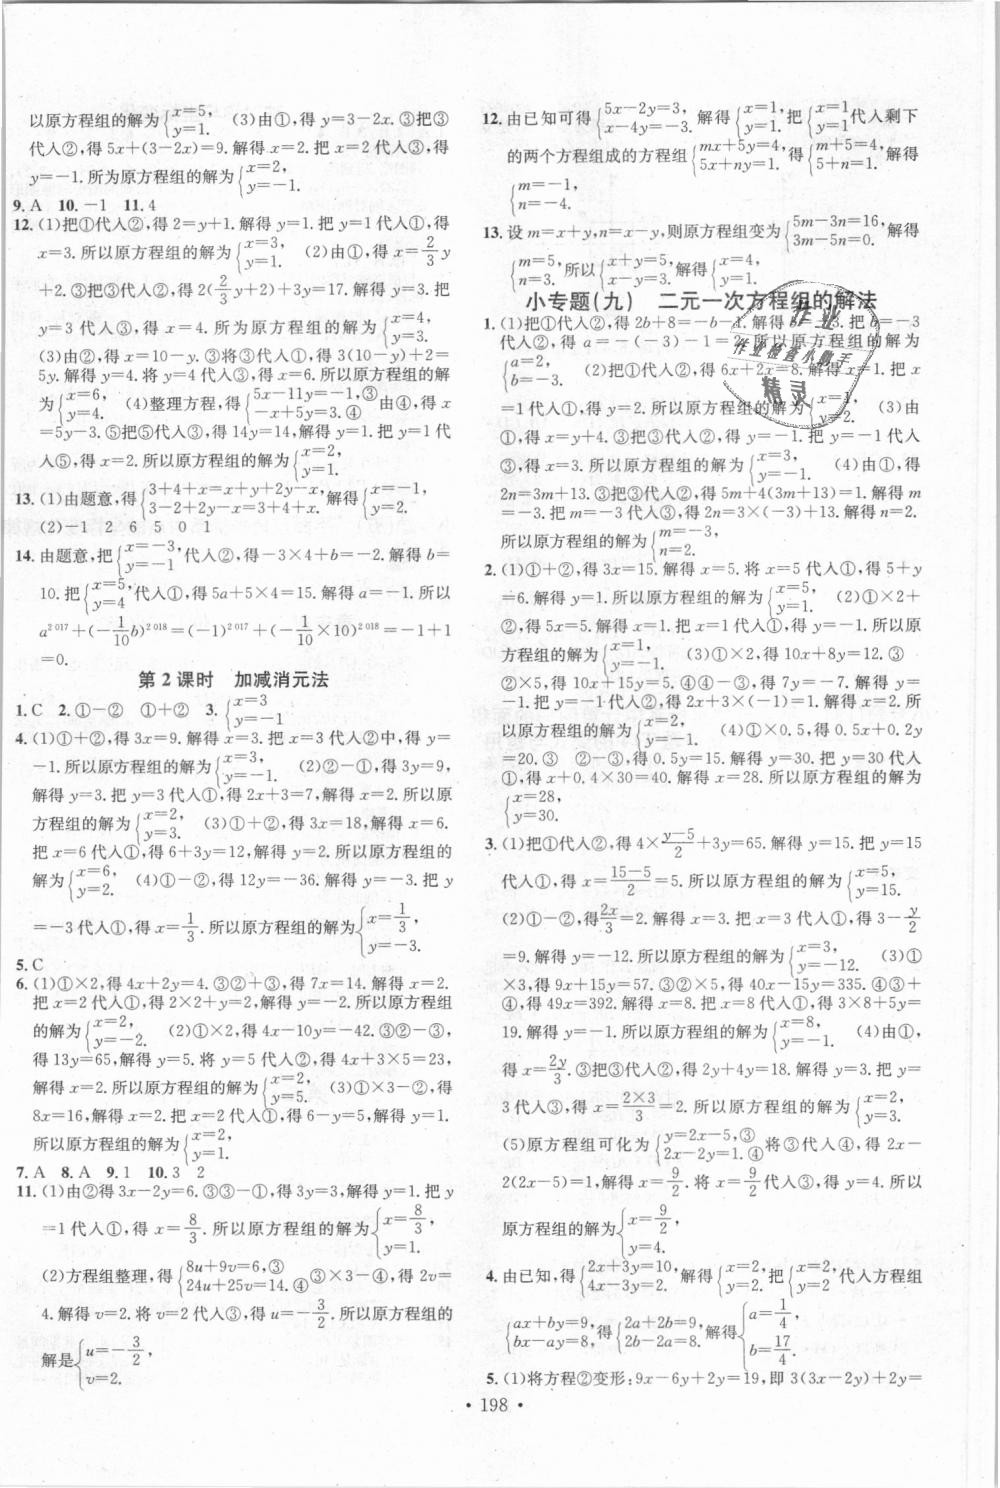 以原方程组的解为{x=5, y=1.　(3)由①,得 y=3-2x.③把③
代人②,得 5x+(3-2x)=9.解得 x=2.把 x=2 代人③,得
y=-1.所为原方程组的解为{x=2, y=-1.
9.A　10.-1　11.4
12.(1)把①代人②,得 2=y+1.解得 y=1.把 y=1 代人①,得
x=3.所以原方程组的解为{x=3, y=1.　(2)由①,得 x=2/3 y
+2.③把③代人②,得 2(2/3 y+2)+3y=17.解得 y=3.把
y=3 代人③,得 x=4.所为原方程组的解为{x=4, y=3.　(3)由①,
得 x=10-y.③将③代人②,得 3(10-y)+2(10-y)=
5y.解得 y=4.将 y=4 代人③,得 x=6.所以原方程组的解
为{x=6, y=4.　(4)整理方程,得{5x-11y=-1,③ -x+5y=3.④由④,得 x
=5y-3.⑤把⑤代人③,得 14y=14,解得 y=1.把 y=1 代
人⑤,得 x=2.所以原方程组的解为{x=2, y=1.
13.(1)由题意,得{3+4+x=x+y+2y-x, 3-2+2y-x=3+4+x.解得{x=-1, y=2.
(2)-1　2　6　5　0　1
14.由题意,把{x=-3, y=-1代人②,得-3×4+b=-2.解得 b=
10.把{x=5, y=4代人①,得 5a+5×4=15.解得 a=-1.所以
a^2 017+(-1/10 b)^2 018=(-1)^2 017+(-1/10×10)^2 018=-1+1
=0.
第 2 课时　加减消元法
1.C　2.①-②　①+②　3.{x=3 y=-1
4.(1)①+②,得 3x=9.解得 x=3.把 x=3 代人②中,得 y=
-1.所以原方程组的解为{x=3, y=-1.　(2)②-①,得 3y=9,
解得 y=3.把 y=3 代人①,得 2x+3=7,解得 x=2.所以原
方程组的解为{x=2, y=3.　(3)①+②,得 3x=18,解得 x=6.
把 x=6 代人①,得 6+3y=12,解得 y=2.所以原方程组的
解为{x=6, y=2.　(4)①-②,得 12y=-36.解得 y=-3.把 y
=-3 代人①,得 x=1/3.所以原方程组的解为{x=1/3, y=-3.
5.C
6.(1)①×2,得 4x+2y=4.③②+③,得 7x=14.解得 x=2.
把 x=2 代人①,得 2×2+y=2,解得 y=-2.所以原方程组
的解为{x=2, y=-2.　(2)①×2,得 4x-10y=-42.③②-③,
得 13y=65,解得 y=5.将 y=5 代人②,得 4x+3×5=23,
解得 x=2.所以原方程组的解为{x=2, y=5.　(3)①×3-②,得
8x=16,解得 x=2.把 x=2 代人①,得 6-y=5,解得 y=1.
所以原方程组的解为{x=2, y=1.
7.A　8.A　9.1　10.3　2
11.(1)由②得 3x-2y=6.③③-①,得 3y=3,解得 y=1.把 y
=1 代人①,得 x=8/3.所以原方程组的解为{x=8/3, y=1.
(2)方程组整理,得{8u+9v=6,③ 24u+25v=14.④③×3-④,得 2v=
4.解得 v=2.将 v=2 代人③,得 u=-3/2.所以原方程组的
解是{u=-3/2, v=2.
12.由已知可得{5x-2y=3, x-4y=-3.解得{x=1, y=1.把{x=1, y=1代人剩下
的两个方程组成的方程组{mx+5y=4, 5x+ny=1.得{m+5=4, 5+n=1.解得
{m=-1, n=-4.
13.设 m=x+y,n=x-y,则原方程组变为{5m-3n=16, 3m-5n=0.解得
{m=5, n=3.所以{x+y=5, x-y=3.解得{x=4, y=1.
小专题(九)　二元一次方程组的解法
1.(1)把①代人②,得 2b+8=-b-1.解得 b=-3.把 b=-3
代人②,得 a=-(-3)-1=2.所以原方程组的解为
{a=2, b=-3.　(2)把①代人②,得 6x+2x=8.解得 x=1.把 x
=1 代人①,得 y=2.所以原方程组的解为{x=1, y=2.　(3)由
①,得 x=y+4.③把③代人②,得 y=-1.把 y=-1 代人
③,得 x=3.所以原方程组的解为{x=3, y=-1.　(4)由①,得
2n=3m+13.③把③代人②,得 5m+4(3m+13)=1.解得 m
=-3.把 m=-3 代人③,得 2n=3×(-3)+13.解得 n=2.
所以原方程组的解为{m=-3, n=2.
2.(1)①+②,得 3x=15.解得 x=5.将 x=5 代人①,得 5+y
=6.解得 y=1.所以原方程组的解为{x=5, y=1.　(2)①×2+
②,得 5x=5.解得 x=1.把 x=1 代人①,得 y=-1.所以原
方程组的解为{x=1, y=-1.　(3)①×5,得 10x+8y=12.③
②×5,得 10x+15y=5.④④-③,得 7y=-7.解得 y=-1.
把 y=-1 代人②,得 2x+3×(-1)=1.解得 x=2.所
以原方程组的解为{x=2, y=-1.　(4)①×0.5,得 0.5x+0.2y
=20.③　②-③,得 0.5y=15.解得 y=30.把 y=30 代人
①,得 x+0.4×30=40.解得 x=28.所以原方程组的解为
{x=28, y=30.
3.(1)把①代人②,得 4×(y-5)/2+3y=65.解得 y=15.把 y=15
代人①,得 x=(15-5)/2=5.所以原方程组的解为{x=5, y=15.
(2)①-②,得 2x/3=2.解得 x=3.把 x=3 代人①,得 3-y/2
=9.解得 y=-12.所以原方程组的解为{x=3, y=-12.　(3)①
×3,得 9x+15y=57.③②×5,得 40x-15y=335.④③+
④,得 49x=392.解得 x=8.把 x=8 代人①,得 3×8+5y=
19.解得 y=-1.所以原方程组的解为{x=8, y=-1.　(4)由①,
得 x=2y/3.③把③代人②,得 2y+4y=18.解得 y=3.把 y=
3 代人③,得 x=(2×3)/3=2.所以原方程组的解为{x=2, y=3.
(5)原方程组可化为{y=2x-5,③ 2x-2y=1.④将③代人④,得 2x-
2(2x-5)=1,解得 x=9/2.将 x=9/2代人③,得 y=4.所以
原方程组的解为{x=9/2, y=4.
4.由已知,得{2x+3y=10, 4x-3y=2.解得{x=2, y=2.把{x=2, y=2.代人方程组
{ax+by=9, bx-ay=8,得{2a+2b=9, 2b-2a=8.解得{a=1/4, b=17/4.
5.(1)将方程②变形:9x-6y+2y=19,即 3(3x-2y)+2y=
作业
作业检查小助手
精灵
• 198 •